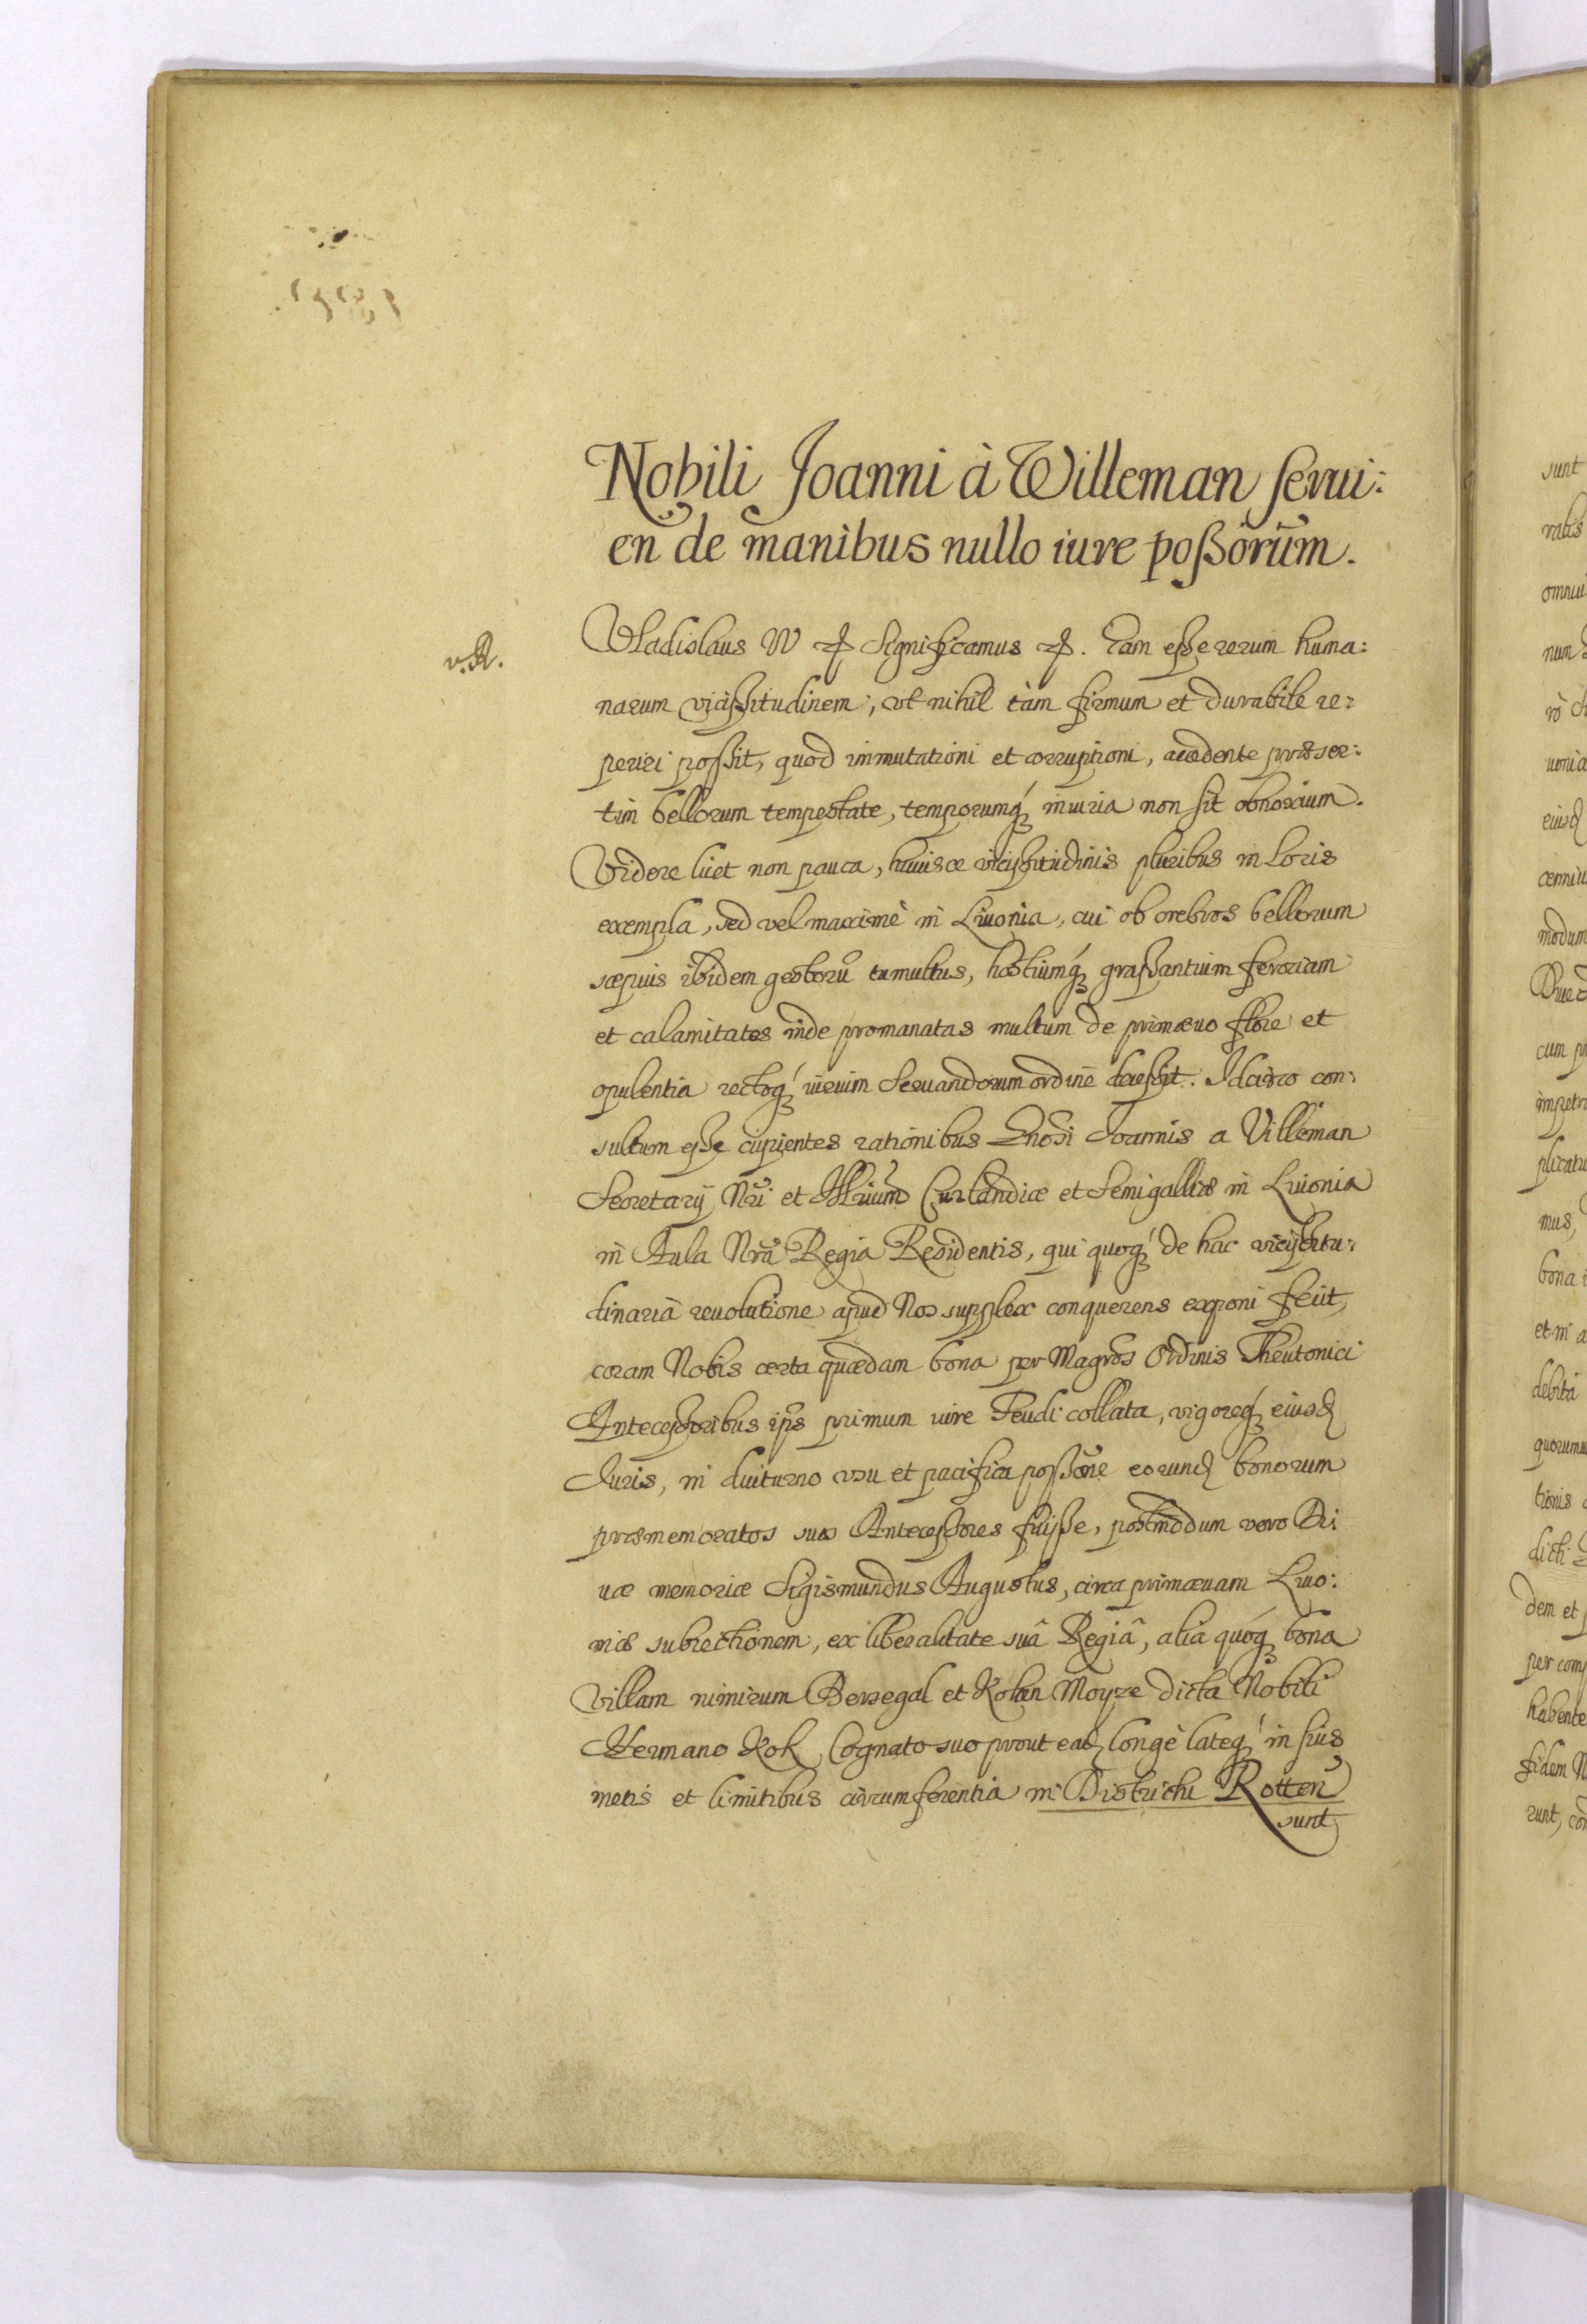 Nobili Joanni à Willeman servi:
en de manibus nullo iure poßorum.
Vladislaus IV Significamus. Eam esse rerum huma:
narum vicissitudinem, vt nihil tàm firmum et durabile re:
periri possit, quod immutationi et corruptioni, accedente præser:
tim bellorum tempestate, temporumq́ iniuria non sit obnoxium.
Videre licet non pauca, huiusce vicissitudinis pluribus in locis
exempla, sed vel maximè in Liuonia, cui ob crebros bellorum
sæpius ibidem gestorū tumultus, hostiumq́ grassantium ferociam
et calamitates inde promanatas multum de primæuo flore et
opulentia rectoq́ iurium seruandorum ordine Idcirco con:
sultum esse cupientes rationibus Gnosi Joannis a Villeman
Secretarij Nri et Curlandiæ et Semigalliæ in Liuonia
in Aula Nrâ Regia Residentis, qui quoq́ de hac vicissitu:
dinariâ reuolutione apud Nos supplex conquerens exponi fecit,
coram Nobis certa quædam bona per Magros Ordinis Theutonici
Antecessoribus ips primum iure Feudi collata, vigoreq́ eiusd
Juris, in diuturno vsu et pacifica poßone eorund bonorum
præmemoratos suos Antecessores fuisse, postmodum vero Di
uæ memoriæ Sigismundus Augustus, circa primæuam Liuo:
niæ subiectionem, ex liberalitate suâ Regiâ, alia quoq́ bona
Villam nimirum Bersegal et Koken Moyze dicta Nobili
Hermano Kok Cognato suo prout ead longè lateq́ in suis
metis et limitibus circumferentia in Districtu Rotten
sunt